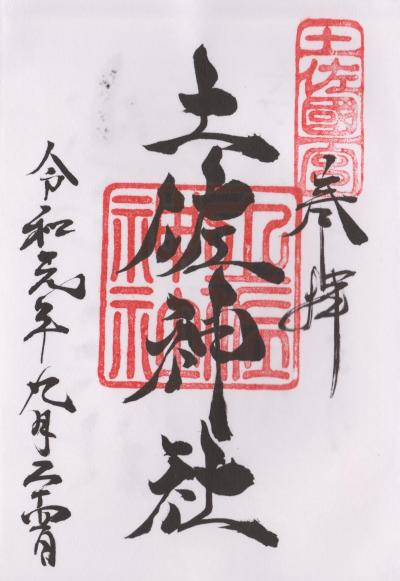 土佐國一宮
奉拝
土佐神社
土佐神社
令和元年九月二十四日